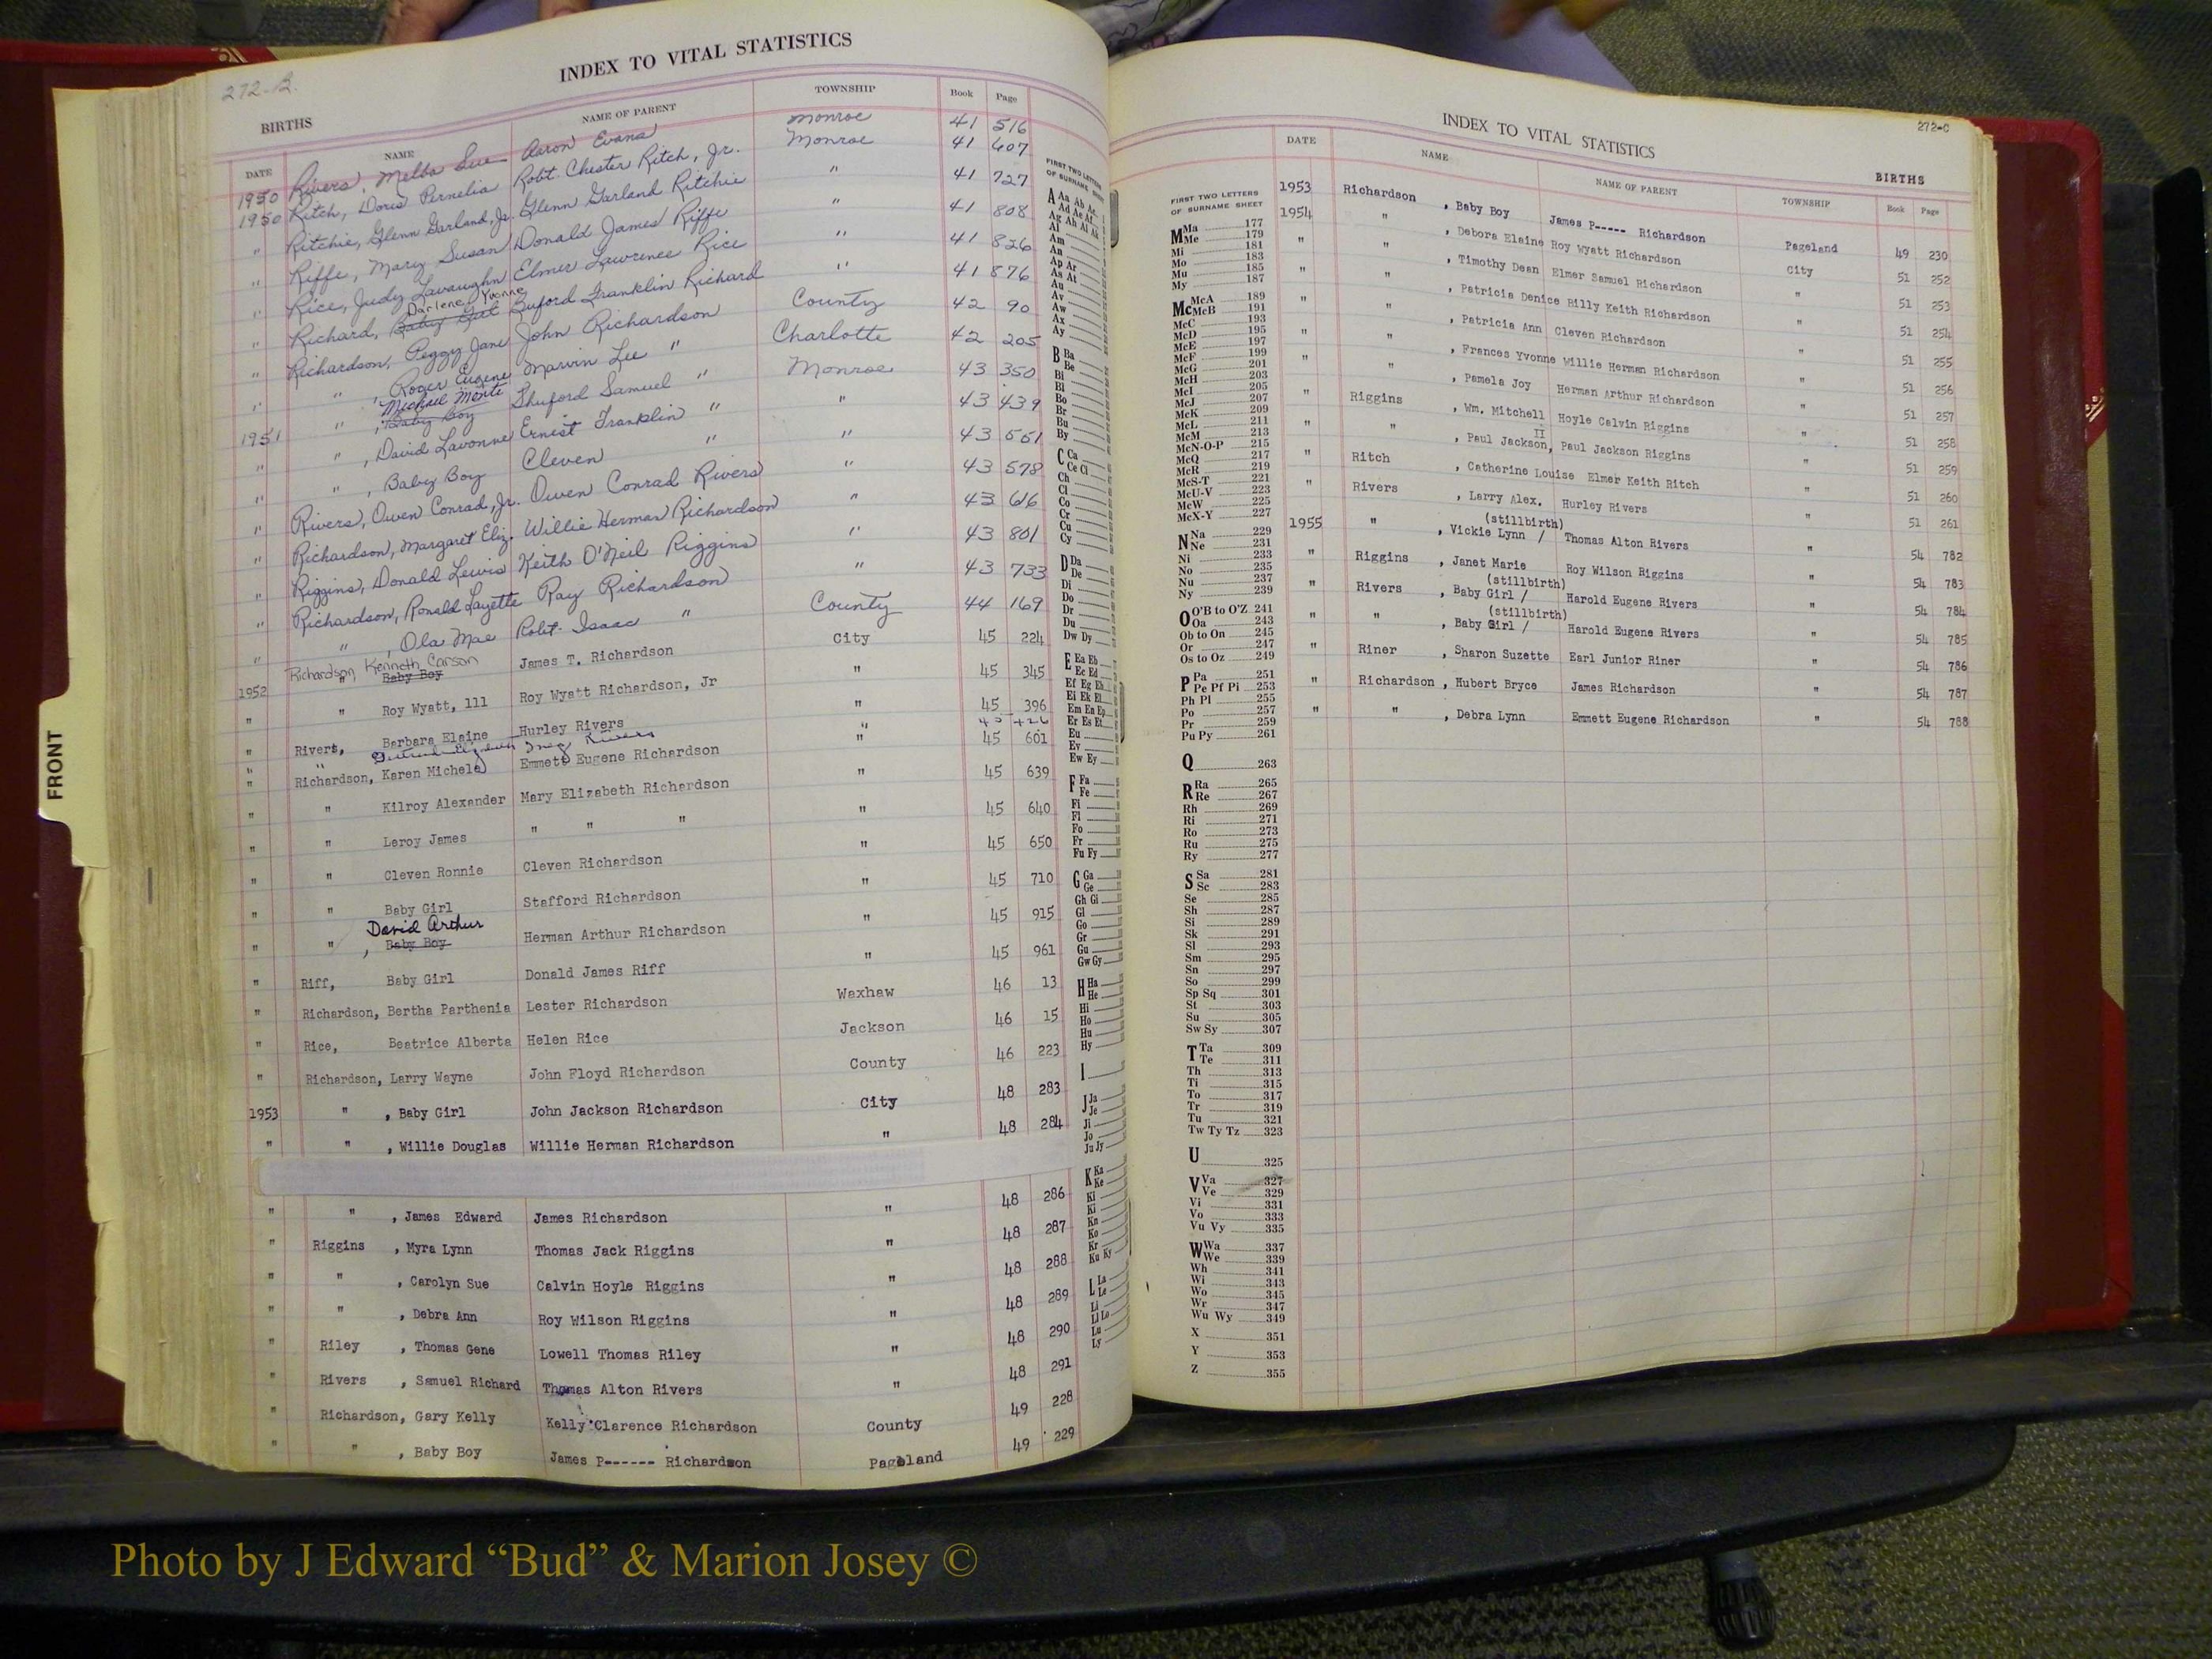 272-B.
INDEX TO VITAL STATISTICS
BIRTHS
DATE NAME NAME OF PARENT TOWNSHIP Book Page
1950 Rivers, Melba Sue Aaron Evans Monroe 41 516
1950 Ritch, Doris Pernelia Robt. Chester Ritch, Jr. Monroe 41 607
" Ritchie, Glenn Garland, Jr. Glenn Garland Ritchie " 41 727
" Riffe, Mary Susan Donald James Riffe " 41 808
" Rice, Judy Lavaughn Elmer Lawrence Rice " 41 826
Darlene Yvonne
" Richard, Baby Girl Buford Franklin Richard " 41 876
" Richardson, Peggy Jane John Richardson County 42 90
" " , Roger Eugene Marvin Lee " Charlotte 42 205
Michael Monte
1951 " , Baby Boy Shuford Samuel " Monroe 43 350
" " , David Lavonne Ernest Franklin " " 43 439
" " , Baby Boy Cleven " " 43 551
" Rivers, Owen Conrad, Jr. Owen Conrad Rivers " 43 578
" Richardson, Margaret Eliz. Willie Herman Richardson " 43 616
" Riggins, Donald Lewis Keith O'Neil Riggins " 43 801
" Richardson, Ronald Layette Ray Richardson " 43 733
" " , Ola Mae Robt. Isaac " County 44 169
Richardson, Kenneth Carson
1952 " Baby Boy James T. Richardson City 45 224
" " Roy Wyatt, 111 Roy Wyatt Richardson, Jr " 45 345
" Rivers, Barbara Elaine Hurley Rivers " 45 396
" " Rivers " 45 426
" Richardson, Karen Michele Emmett Eugene Richardson " 45 601
" " Kilroy Alexander Mary Elizabeth Richardson " 45 639
" " Leroy James " " " " 45 640
" " Cleven Ronnie Cleven Richardson " 45 650
" " Baby Girl Stafford Richardson " 45 710
David Arthur
" " , Baby Boy Herman Arthur Richardson " 45 915
" Riff, Baby Girl Donald James Riff " 45 961
" Richardson, Bertha Parthenia Lester Richardson Waxhaw 46 13
" Rice, Beatrice Alberta Helen Rice Jackson 46 15
" Richardson, Larry Wayne John Floyd Richardson County 46 223
1953 " , Baby Girl John Jackson Richardson City 48 283
" " , Willie Douglas Willie Herman Richardson " 48 284
" " , James Edward James Richardson " 48 286
" Riggins , Myra Lynn Thomas Jack Riggins " 48 287
" " , Carolyn Sue Calvin Hoyle Riggins " 48 288
" " , Debra Ann Roy Wilson Riggins " 48 289
" Riley , Thomas Gene Lowell Thomas Riley " 48 290
" Rivers , Samuel Richard Thomas Alton Rivers " 48 291
" Richardson, Gary Kelly Kelly Clarence Richardson County 49 228
" " , Baby Boy James P------ Richardson Pageland 49 229
FRONT
FIRST TWO LETTERS
OF SURNAME SHEET
A Aa Ab Ac
Ad Ae Af
Ag Ah Ai Ak
Al
Am
An
Ap Ar
As At
Au
Av
Aw
Ax
Ay
B Ba
Be
Bi
Bl
Bo
Br
Bu
By
C Ca
Ce Ci
Ch
Cl
Co
Cr
Cu
Cy
D Da
De
Di
Do
Dr
Du
Dw Dy
E Ea Eb
Ec Ed
Ef Eg Eh
Ei Ek El
Em En Ep
Er Es Et
Eu
Ev
Ew Ey
F Fa
Fe
Fi
Fl
Fo
Fr
Fu Fy
G Ga
Ge
Gh Gi
Gl
Go
Gr
Gu
Gw Gy
H Ha
He
Hi
Ho
Hu
Hy
I
J Ja
Je
Ji
Jo
Ju Jy
K Ka
Ke
Kl
Ki
Kn
Ko
Kr
Ku Ky
L La
Le
Li
Ll Lo
Lu
Ly
272-C
INDEX TO VITAL STATISTICS
BIRTHS
DATE NAME NAME OF PARENT TOWNSHIP Book Page
1953 Richardson , Baby Boy James P----- Richardson Pageland 49 230
1954 " , Debora Elaine Roy Wyatt Richardson City 51 252
" " , Timothy Dean Elmer Samuel Richardson " 51 253
" " , Patricia Denice Billy Keith Richardson " 51 254
" " , Patricia Ann Cleven Richardson " 51 255
" " , Frances Yvonne Willie Herman Richardson " 51 256
" " , Pamela Joy Herman Arthur Richardson " 51 257
" Riggins , Wm. Mitchell Hoyle Calvin Riggins " 51 258
II
" " , Paul Jackson, Paul Jackson Riggins " 51 259
" Ritch , Catherine Louise Elmer Keith Ritch " 51 260
" Rivers , Larry Alex. Hurley Rivers " 51 261
(stillbirth)
1955 " , Vickie Lynn / Thomas Alton Rivers " 54 782
" Riggins , Janet Marie Roy Wilson Riggins " 54 783
(stillbirth)
" Rivers , Baby Girl / Harold Eugene Rivers " 54 784
(stillbirth)
" " , Baby Girl / Harold Eugene Rivers " 54 785
" Riner , Sharon Suzette Earl Junior Riner " 54 786
" Richardson , Hubert Bryce James Richardson " 54 787
" " , Debra Lynn Emmett Eugene Richardson " 54 788
FIRST TWO LETTERS
OF SURNAME SHEET
M Ma 177
Me 179
Mi 181
Mo 183
Mu 185
My 187
Mc McA 189
McB 191
McC 193
McD 195
McE 197
McF 199
McG 201
McH 203
McI 205
McJ 207
McK 209
McL 211
McM 213
McN-O-P 215
McQ 217
McR 219
McS-T 221
McU-V 223
McW 225
McX-Y 227
N Na 229
Ne 231
Ni 233
No 235
Nu 237
Ny 239
O O'B to O'Z 241
Oa 243
Ob to On 245
Or 247
Os to Oz 249
P Pa 251
Pe Pf Pi 253
Ph Pl 255
Po 257
Pr 259
Pu Py 261
Q 263
R Ra 265
Re 267
Rh 269
Ri 271
Ro 273
Ru 275
Ry 277
S Sa 281
Sc 283
Se 285
Sh 287
Si 289
Sk 291
Sl 293
Sm 295
Sn 297
So 299
Sp Sq 301
St 303
Su 305
Sw Sy 307
T Ta 309
Te 311
Th 313
Ti 315
To 317
Tr 319
Tu 321
Tw Ty Tz 323
U 325
V Va 327
Ve 329
Vi 331
Vo 333
Vu Vy 335
W Wa 337
We 339
Wh 341
Wi 343
Wo 345
Wr 347
Wu Wy 349
X 351
Y 353
Z 355
Photo by J Edward “Bud” & Marion Josey ©